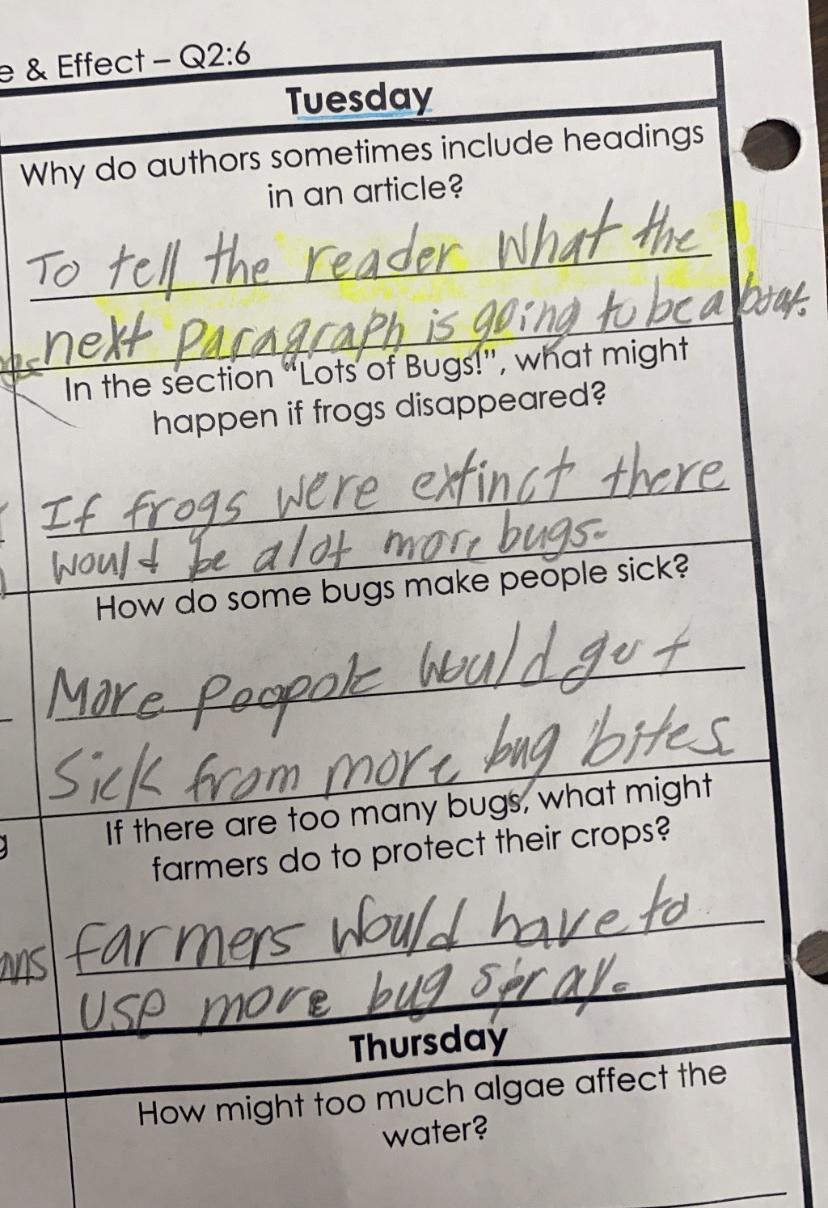 e & Effect – Q2:6
Tuesday
Why do authors sometimes include headings
in an article?
To tell the reader What the
next paragraph is going to be about.
In the section "Lots of Bugs!", what might
happen if frogs disappeared?
If frogs were extinct there
would be alot more bugs.
How do some bugs make people sick?
More Peopole would get
Sick from more bug bites
If there are too many bugs, what might
farmers do to protect their crops?
farmers would have to
use more bug spray.
Thursday
How might too much algae affect the
water?